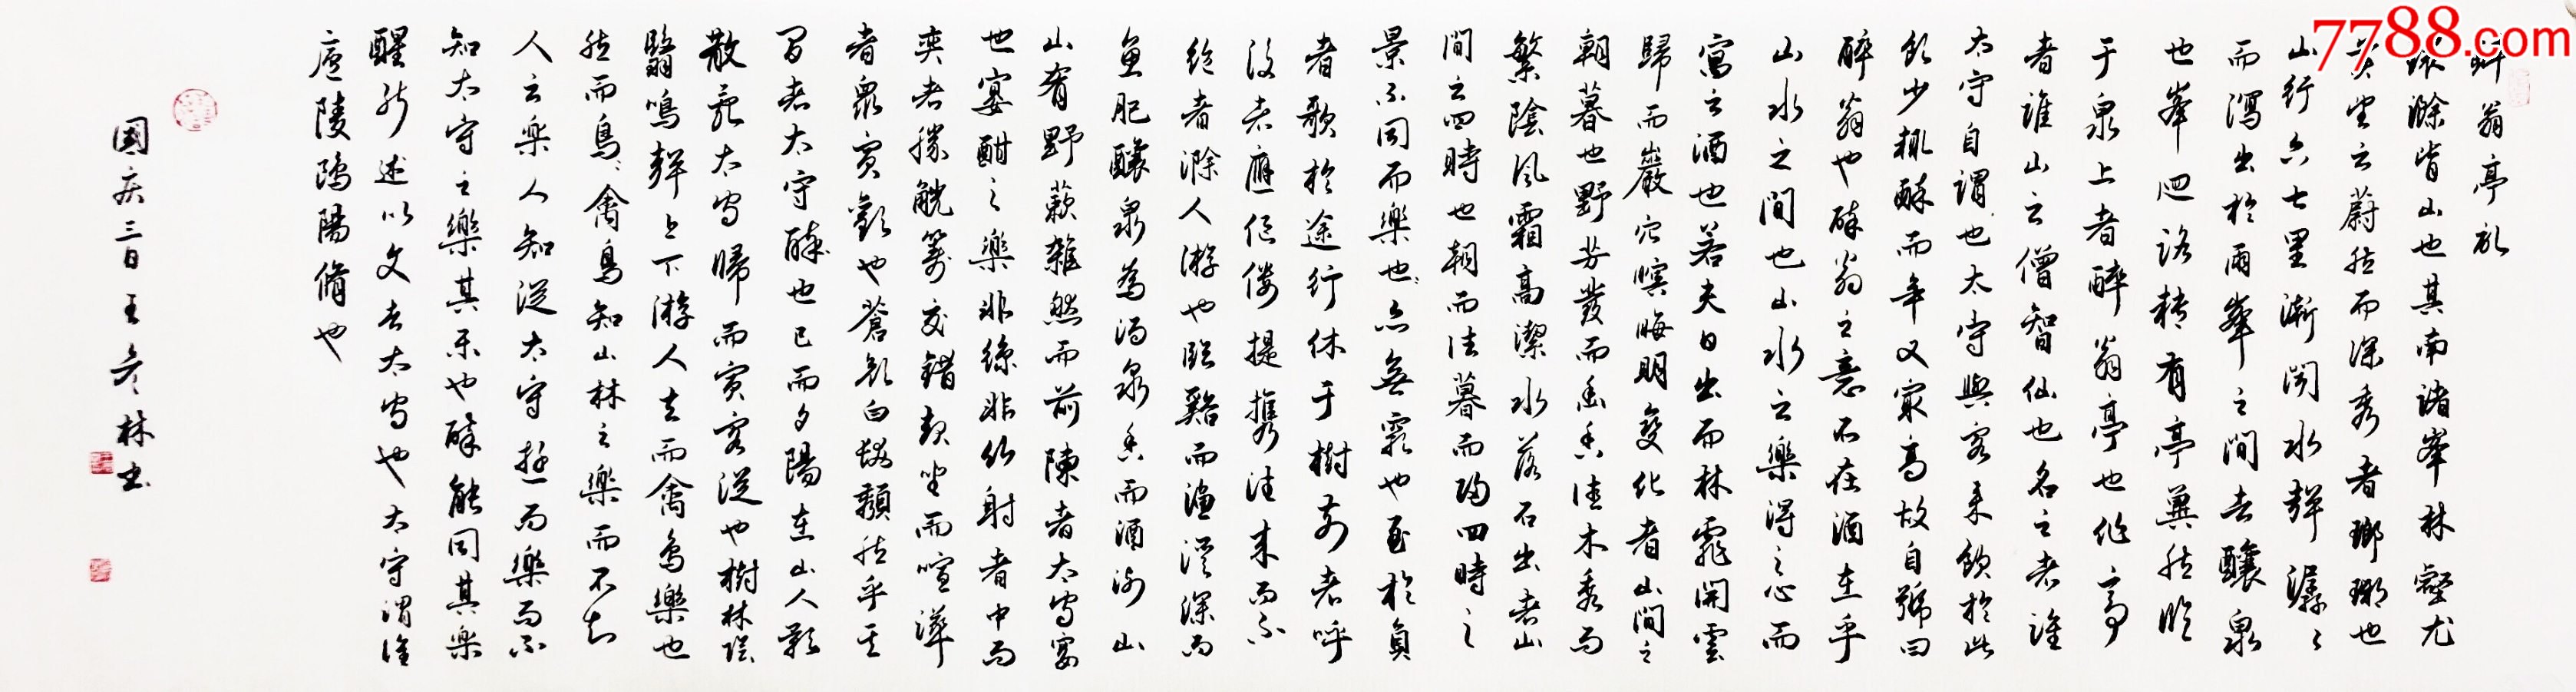 醉翁亭记
环滁皆山也其南诸峯林壑尤
美望之蔚然而深秀者瑯琊也
山行六七里渐闻水声潺々
而泻出於两峯之间者酿泉
也峯回路转有亭翼然临
于泉上者醉翁亭也作亭
者谁山之僧智仙也名之者谁
太守自谓也太守与客来饮於此
饮少辄醉而年又最高故自号曰
醉翁也醉翁之意不在酒在乎
山水之间也山水之乐得之心而
寓之酒也若夫日出而林霏开云
歸而巖穴暝晦明变化者山間之
朝暮也野芳发而幽香佳木秀而
繁陰风霜高潔水落石出者山
間之四時也朝而往暮而归四時之
景不同而樂也亦无穷也至於负
者歌於途行休于樹前者呼
後者应伛偻提携往来而不
绝者滁人游也临谿而渔溪深而
鱼肥釀泉為酒泉香而酒洌山
山肴野蔌雜然而前陳者太守宴
也宴酣之樂非絲非竹射者中而
弈者勝觥筹交錯起坐而喧譁
者眾宾歡也蒼颜白髮頹然乎其
間者太守醉也已而夕陽在山人影
散亂太守歸而宾客從也樹林陰
翳鳴聲上下游人去而禽鸟樂也
然而鸟禽鸟知山林之樂而不知
人之樂人知從太守遊而樂而不
知太守之樂其乐也醉能同其樂
醒能述以文者太守也太守谓谁
庐陵鷗陽脩也
國庆三日王彦林书
7788.com